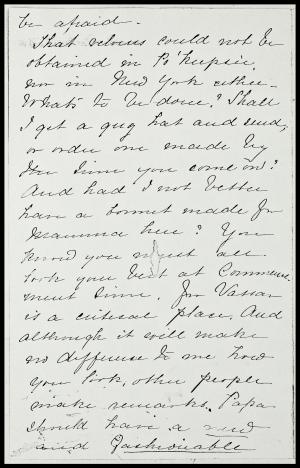 be afraid.
That velours could not be
obtained in Po'keepsie
nor in New York either.
What's to be done? Shall
I get a gug hat and send,
or order one made by
the time you come on?
And had I not better
have a bonnet made for
Mamma here? You
know you must all
look your best at Commence
ment time. for Vassar
is a critical place. And
although it will make
no difference to me how
you look, other people
make remarks. Papa
should have a new
and fashionable